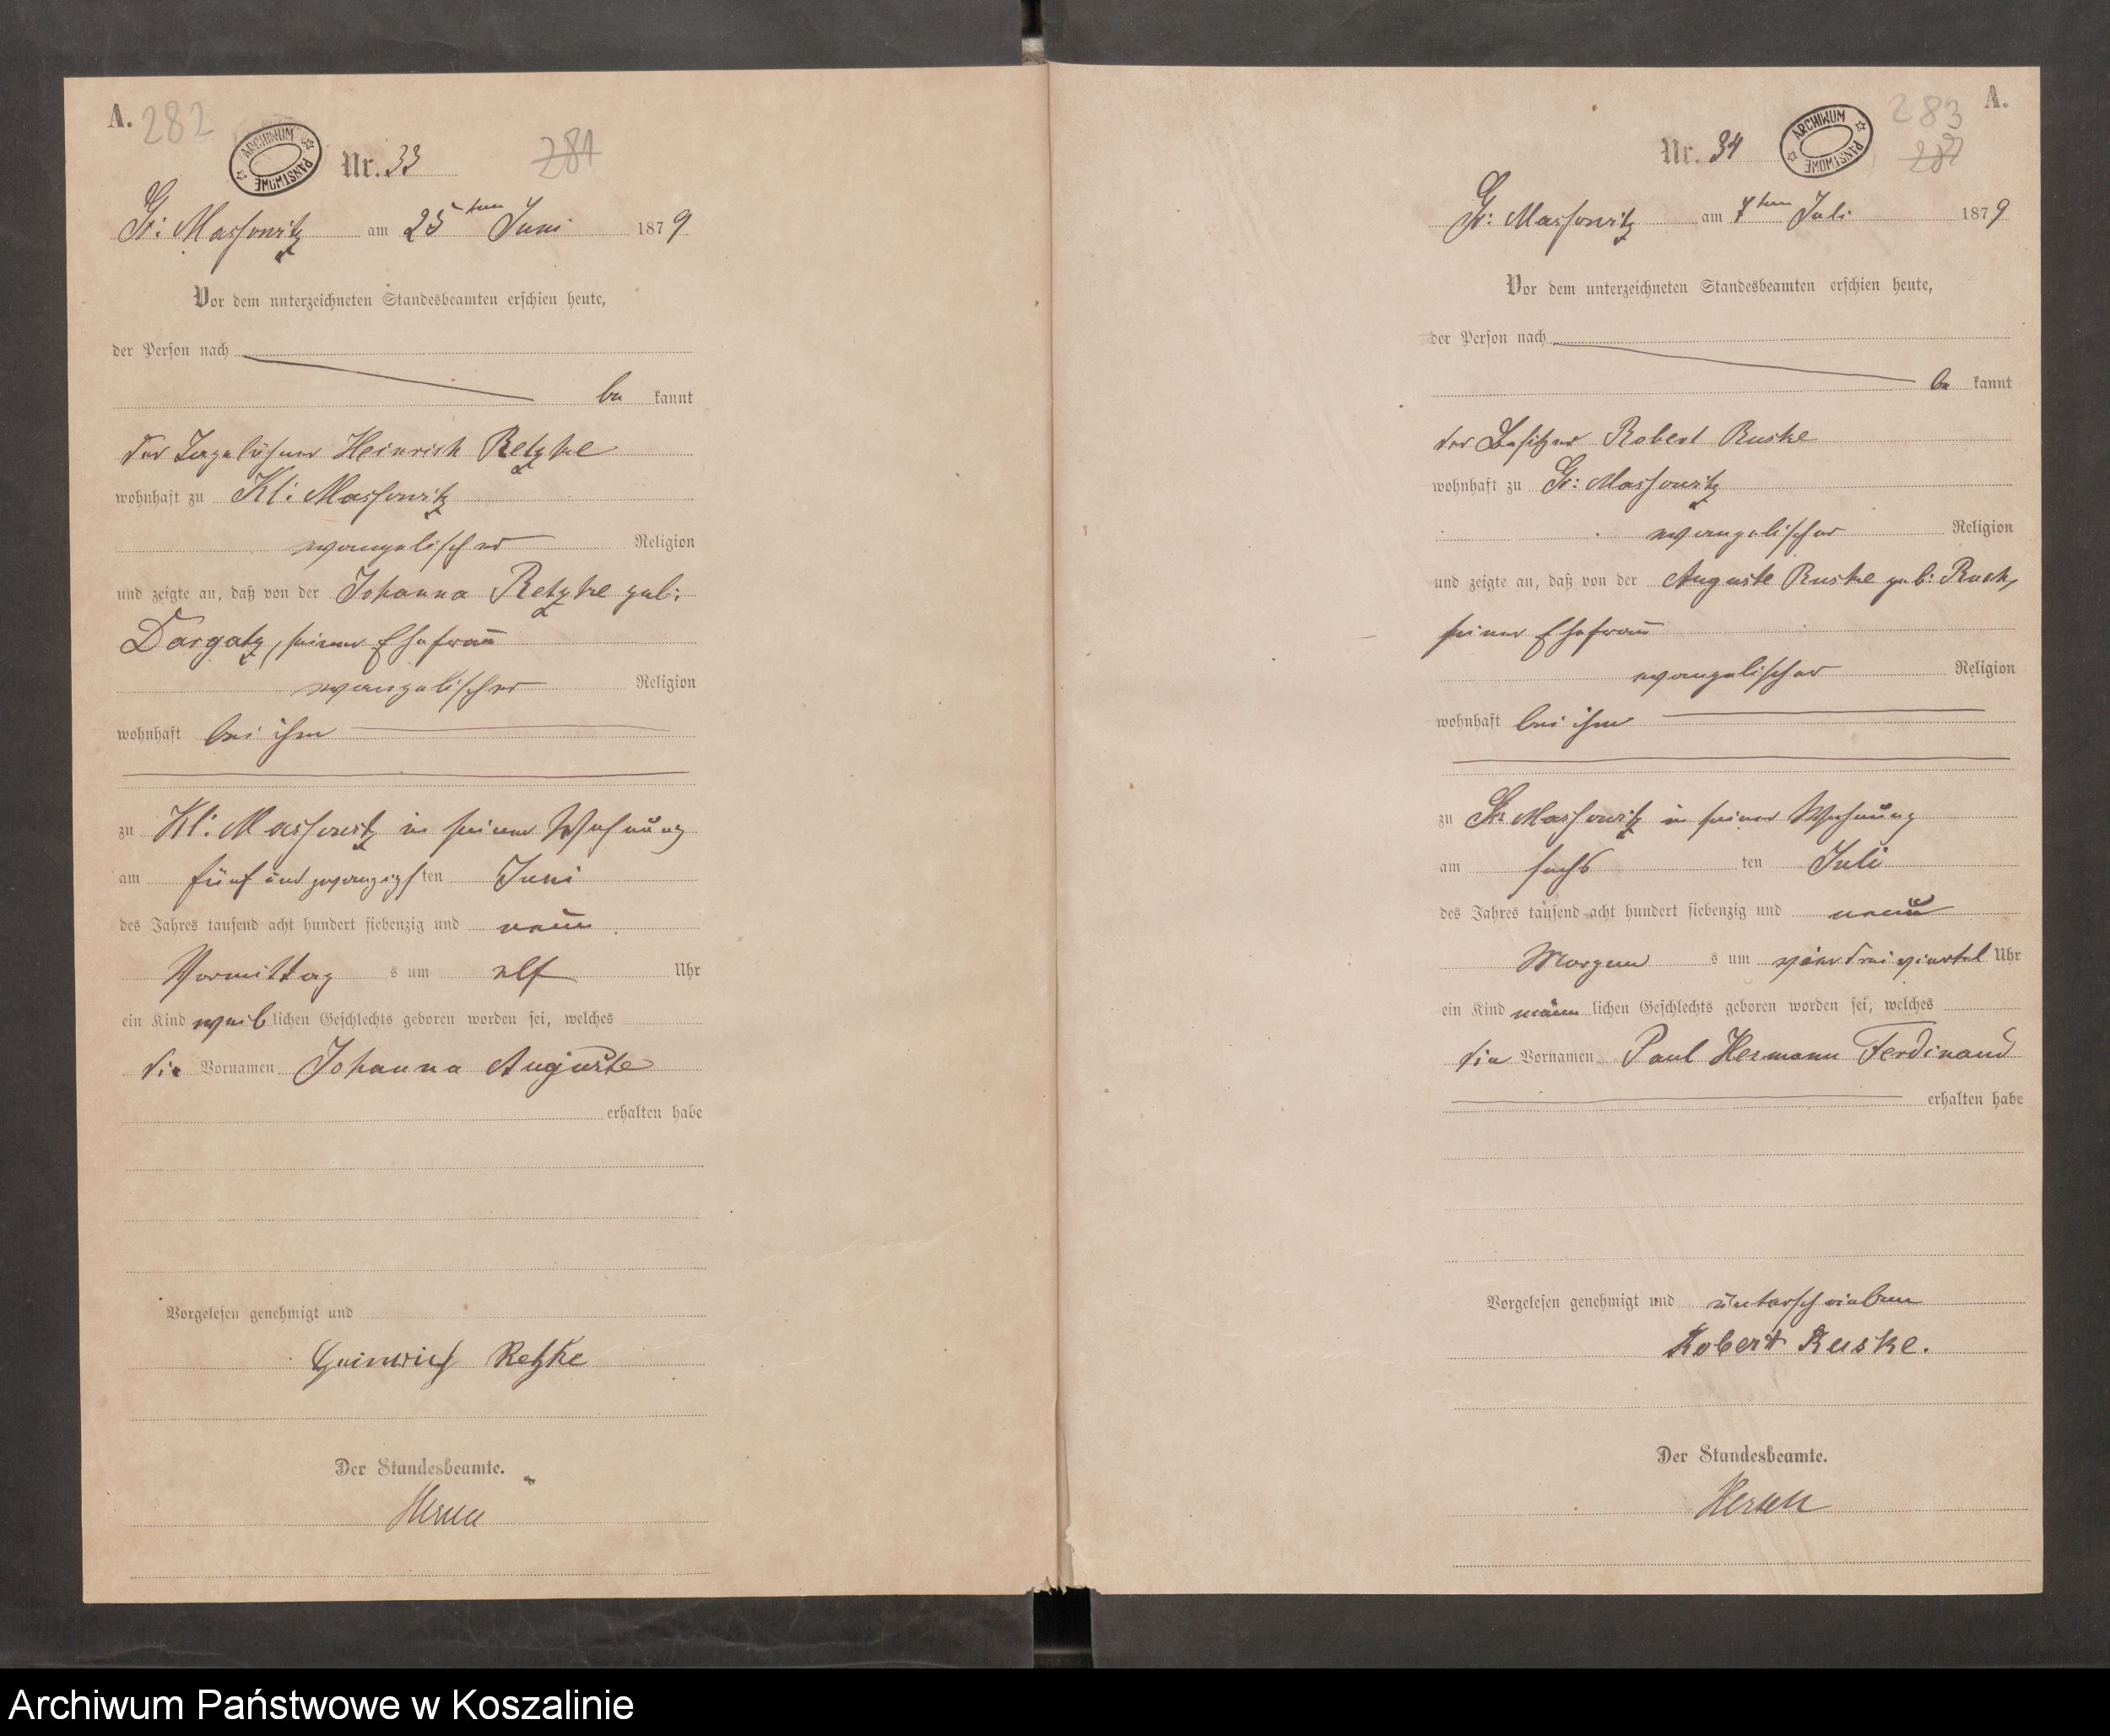 A. 282
ARCHIWUM PAŃSTWOWE
Nr. 33 281
Gr: Massowitz am 25ten Juni 1879
Vor dem unterzeichneten Standesbeamten erschien heute,
der Person nach
be kannt
der Tagelöhner Heinrich Retzke
wohnhaft zu Kl: Massowitz
evangelischer Religion
und zeigte an, daß von der Johanna Retzke geb:
Dargatz, seiner Ehefrau
evangelischer Religion
wohnhaft bei ihm
zu Kl: Massowitz in seiner Wohnung
am fünf und zwanzigsten Juni
des Jahres tausend acht hundert siebenzig und neun
Vormittag s um elf Uhr
ein Kind weiblichen Geschlechts geboren worden sei, welches
die Vornamen Johanna Auguste
erhalten habe
Vorgelesen genehmigt und
Heinrich Retzke
Der Standesbeamte.
283 A.
ARCHIWUM PAŃSTWOWE
Nr. 34 282
Gr: Massowitz am 7ten Juli 1879
Vor dem unterzeichneten Standesbeamten erschien heute,
der Person nach
be kannt
der Besitzer Robert Ruske
wohnhaft zu Gr: Massowitz
evangelischer Religion
und zeigte an, daß von der Auguste Ruske geb:
seiner Ehefrau
evangelischer Religion
wohnhaft bei ihm
zu Gr: Massowitz in seiner Wohnung
am sechs ten Juli
des Jahres tausend acht hundert siebenzig und neun
Morgen s um vier dreiviertel Uhr
ein Kind männ lichen Geschlechts geboren worden sei, welches
die Vornamen Paul Hermann Ferdinand
erhalten habe
Vorgelesen genehmigt und unterschrieben
Robert Ruske.
Der Standesbeamte.
Archiwum Państwowe w Koszalinie